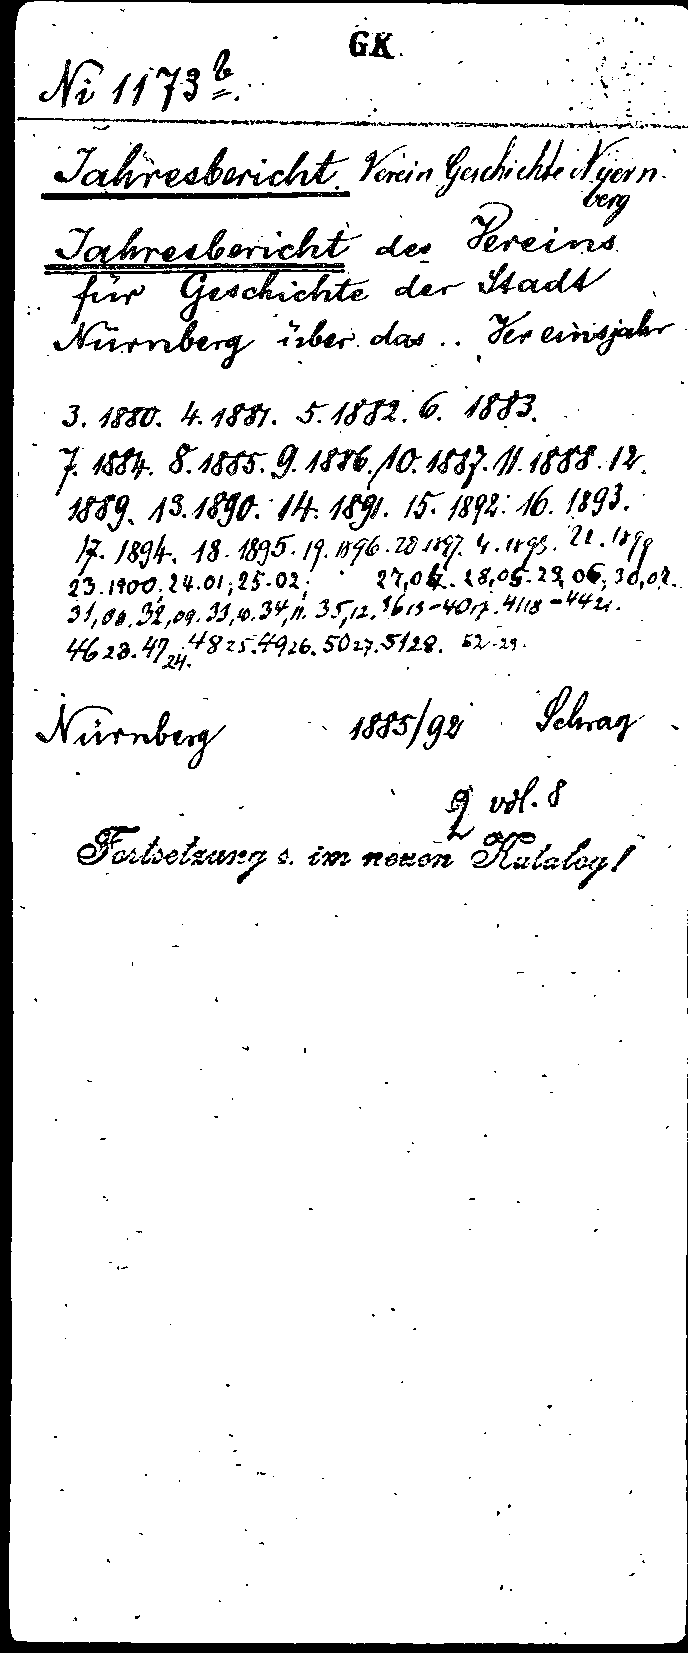 GK.
Ni 1173 b.
Jahresbericht. Verein Geschichte Nyern-
berg
Jahresbericht des Vereins
für Geschichte der Stadt
Nürnberg über das .. Vereinsjahr
3. 1880. 4. 1881. 5. 1882. 6. 1883.
7. 1884. 8. 1885. 9. 1886. 10. 1887. 11. 1888. 12.
1889. 13. 1890. 14. 1891. 15. 1892. 16. 1893.
17. 1894. 18. 1895. 19. 1896. 20 1897. 1898. 22. 1899
23. 1900. 24. 01; 25. 02; 27,04. 28,05. 29,06; 30,07.
31,08. 32,09. 33,10. 34,11. 35,12. 36 13 - 40 17. 41 18 - 44 21.
46 23. 47 24. 48 25. 49 26. 50 27. 51 28. 52. 29.
Nürnberg 1885/92 Schrag
vol. 8
Fortsetzung s. im neuen Katalog!